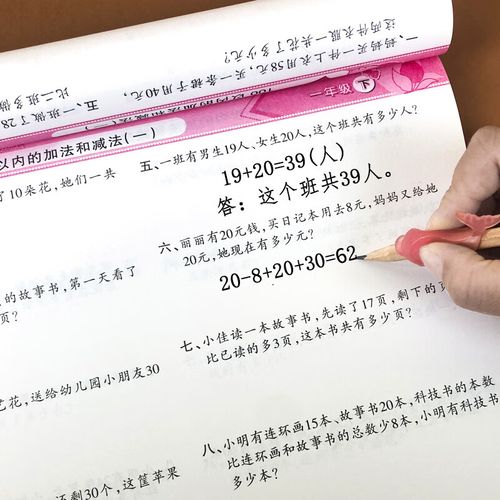 一、妈妈买一件上衣用58元，买一条裙子用40元，
这两件衣服一共花了多少元？
五、一班做了28
比二班多做
一年级 下
以内的加法和减法(一)
了10朵花，她们一共
五、一班有男生19人、女生20人，这个班共有多少人？
19+20=39(人)
答：这个班共39人。
六、丽丽有20元钱，买日记本用去8元，妈妈又给她
20元，她现在有多少元？
20-8+20+30=62
的故事书，第一天看了
页？
七、小佳读一本故事书，先读了17页，剩下的页
比已读的多3页，这本书共有多少页？
艺花，送给幼儿园小朋友30
八、小明有连环画15本、故事书20本，科技书的本数
比连环画和故事书的总数少8本，小明有科技书
多少本？
还剩30个，这筐苹果